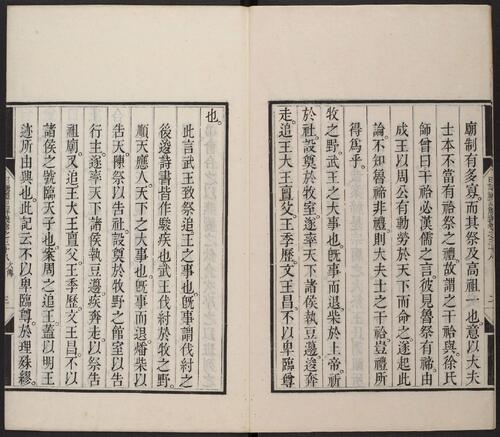 廟制有多寡而其祭及高祖一也意以大夫
士本不當有祫祭之禮故謂之干祫與徐氏
師曾曰干祫必漢儒之言彼見魯祭有禘由
成王以周公有勳勞於天下而命之遂起此
論不知魯禘非禮則大夫士之干祫豈禮所
得爲乎
牧之野武王之大事也旣事而退柴於上帝祈
於社設奠於牧室遂率天下諸侯執豆籩逡奔
走追王大王亶父王季歷文王昌不以卑臨尊
也
此言武王致祭追王之事也旣事謂伐紂之
後逡詩書皆作駿疾也武王伐紂於牧之野
順天應人天下之大事也旣事而退燔柴以
告天陳祭以告社設奠於牧野之館室以告
行主遂率天下諸侯執豆籩疾奔走以祭告
祖廟又追王大王亶父王季歷文王昌不以
諸侯之號臨天子也案周之追王蓋以明王
迹所由興也此記云不以卑臨尊於理殊繆